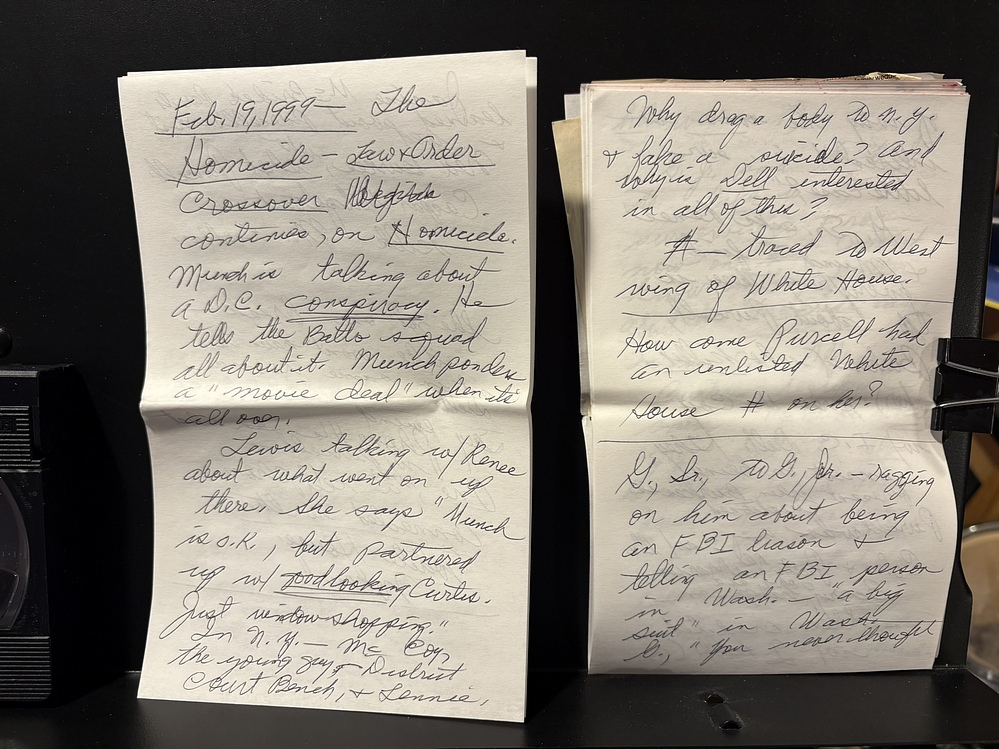 Feb. 19, 1999 — The
Homicide - Law & Order
Crossover
continues, on Homicide.
Munch is talking about
a D.C. conspiracy. He
tells the Balto squad
all about it. Munch ponders
a "movie deal" when it's
all over.
Lewis talking w/ Renee
about what went on up
there. She says "Munch
is o.k., but partnered
up w/ goodlooking Curtis.
Just window-shopping."
In N.Y. — Mc Coy,
the young guy, District
Court Bench, & Lennie,
Why drag a body to N.Y.
& fake a suicide? And
why is Dell interested
in all of this?
# — traced to West
wing of White House.
How come Purcell had
an unlisted White
House # on her?
G., Sr., to G., Jr. — ragging
on him about being
an FBI liason &
telling an FBI person
in Wash. — "a big
suit" in Wash.
G., "You never thought